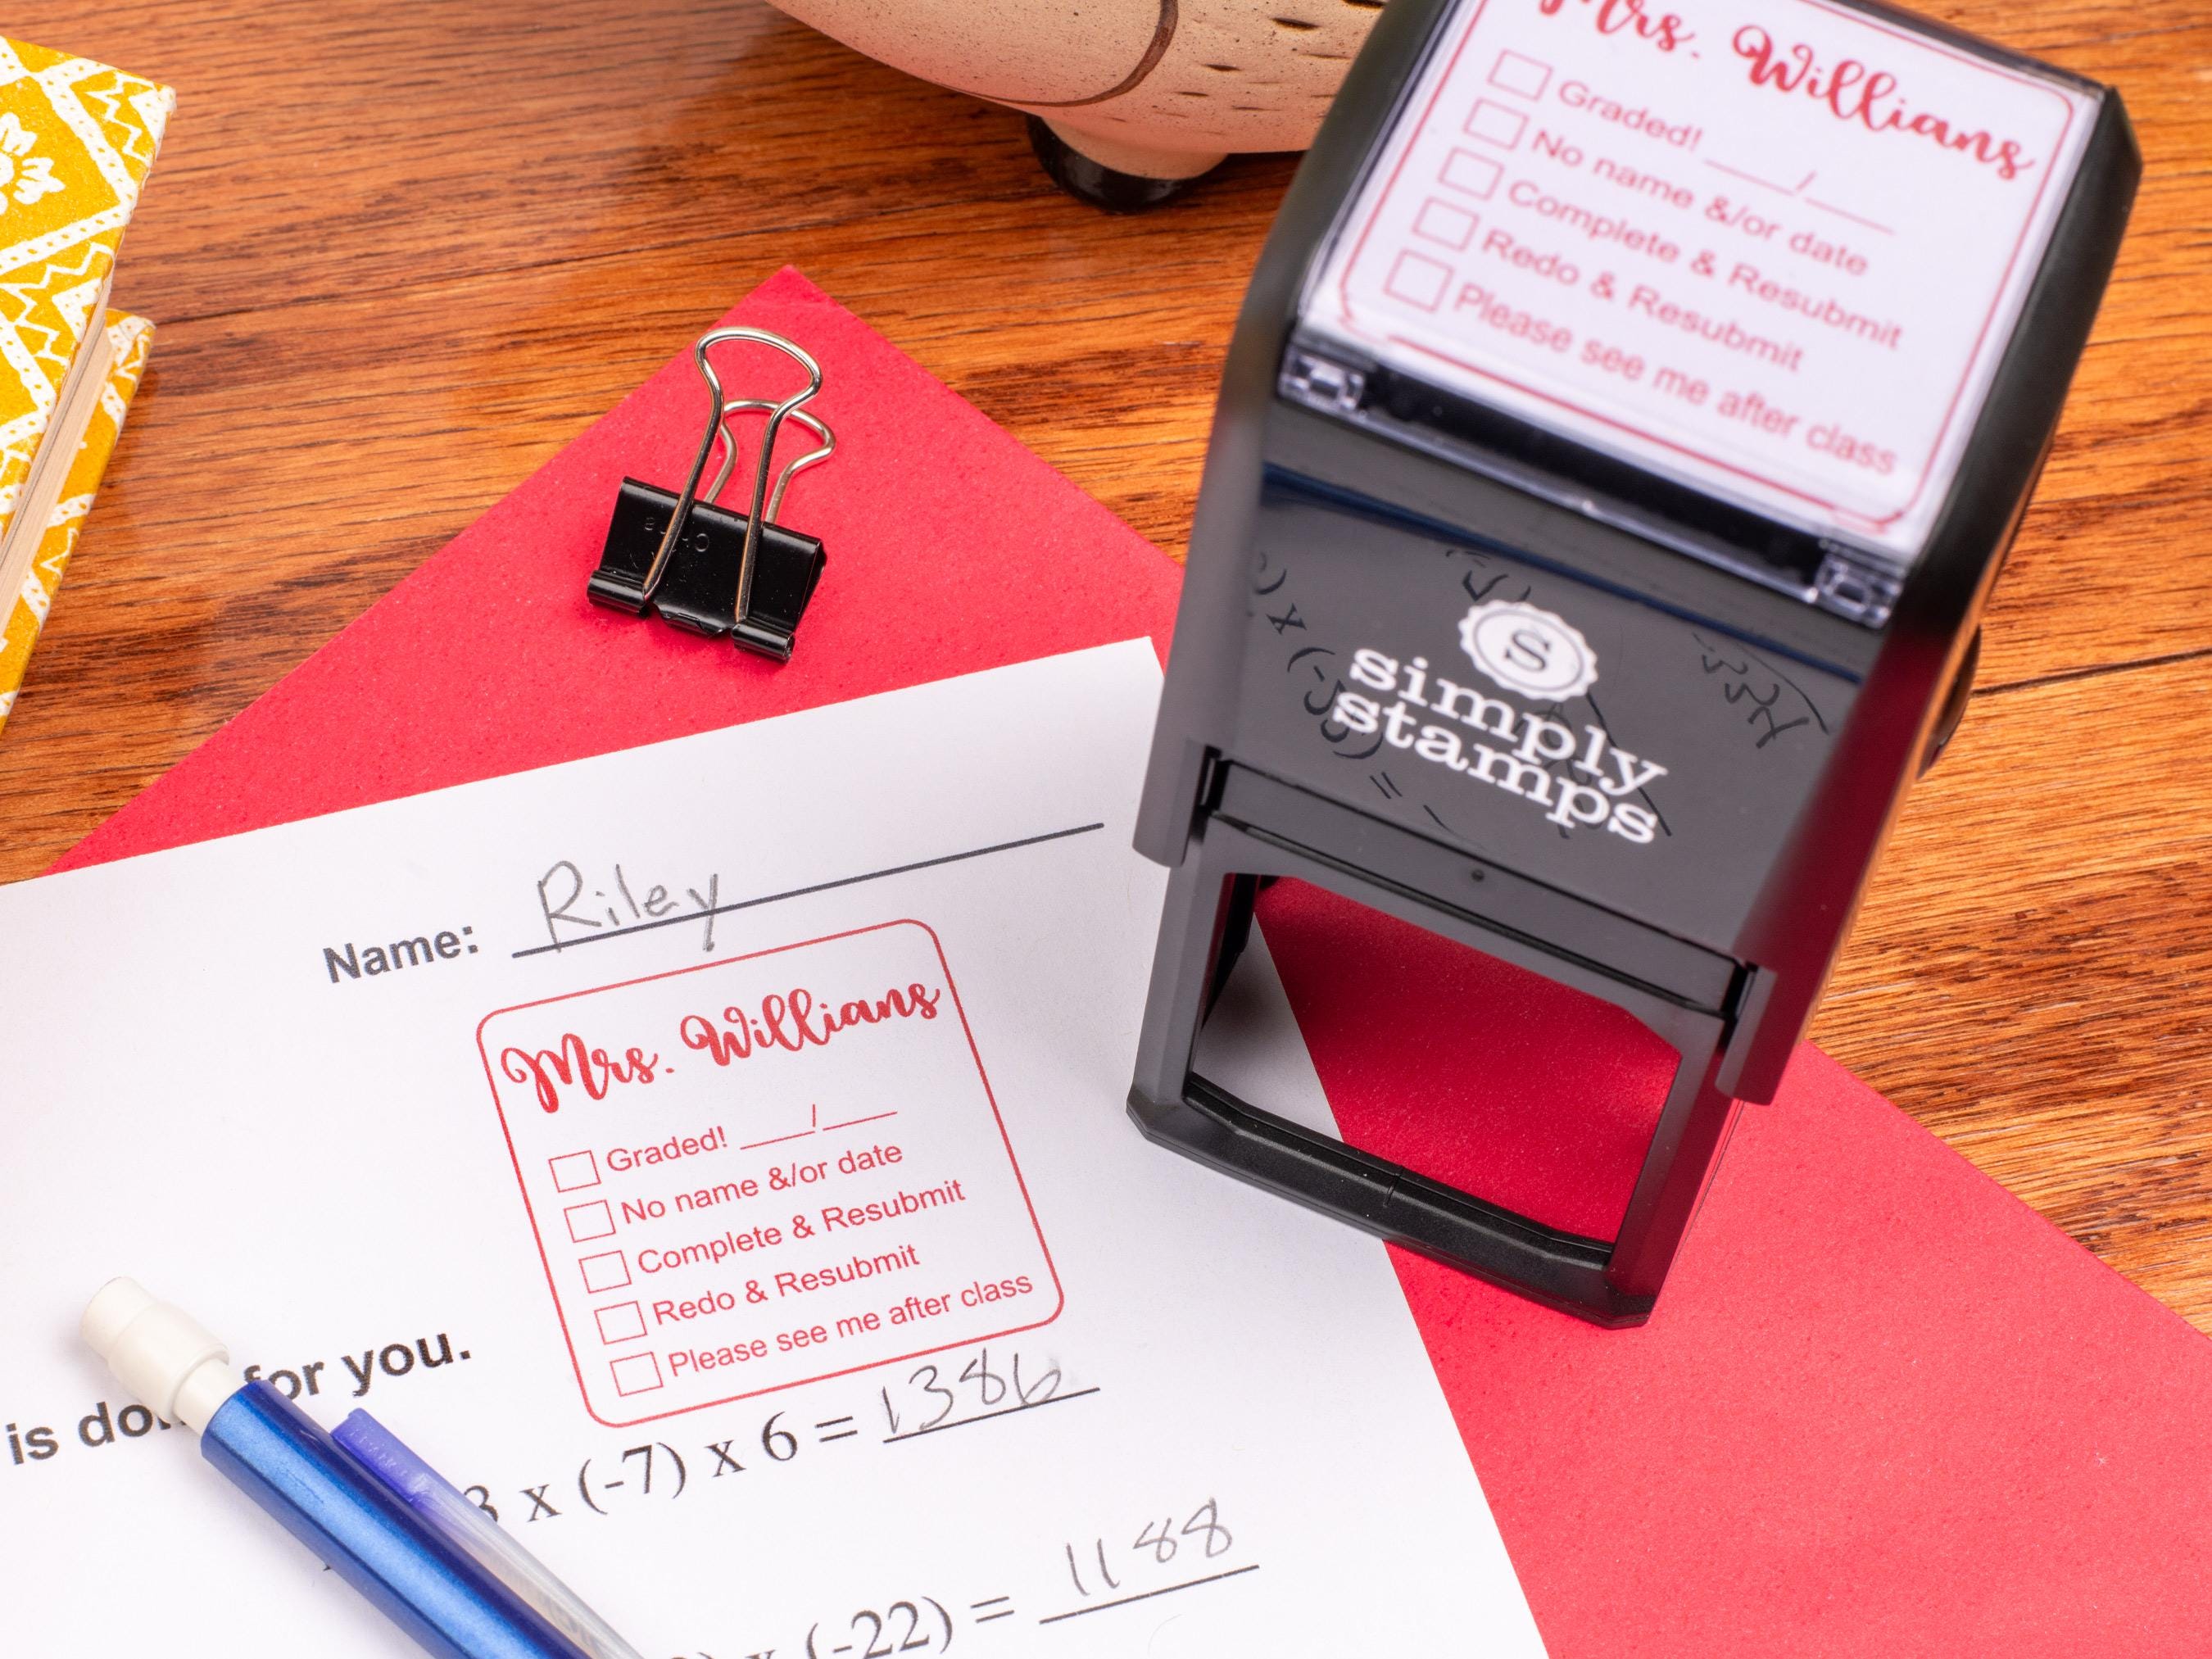 Mrs. Willians
Graded! ___/___
No name &/or date
Complete & Resubmit
Redo & Resubmit
Please see me after class
S
simply
stamps
Name: Riley
Mrs. Willians
Graded! ___/___
No name &/or date
Complete & Resubmit
Redo & Resubmit
Please see me after class
for you.
is
3 x (-7) x 6 = 1386
x (-22) = 1188